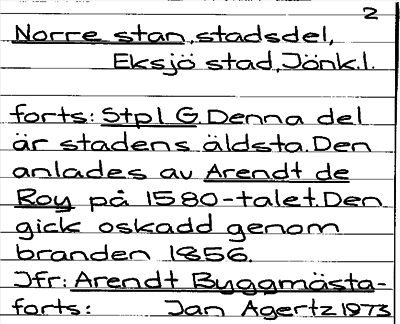 2
Norre stan, stadsdel,
Eksjö stad, Jönk.l.
forts: Stpl G. Denna del
är stadens äldsta. Den
anlades av Arendt de
Roy på 1580-talet. Den
gick oskadd genom
branden 1856.
Jfr: Arendt Byggmästa-
forts: Jan Agertz 1973